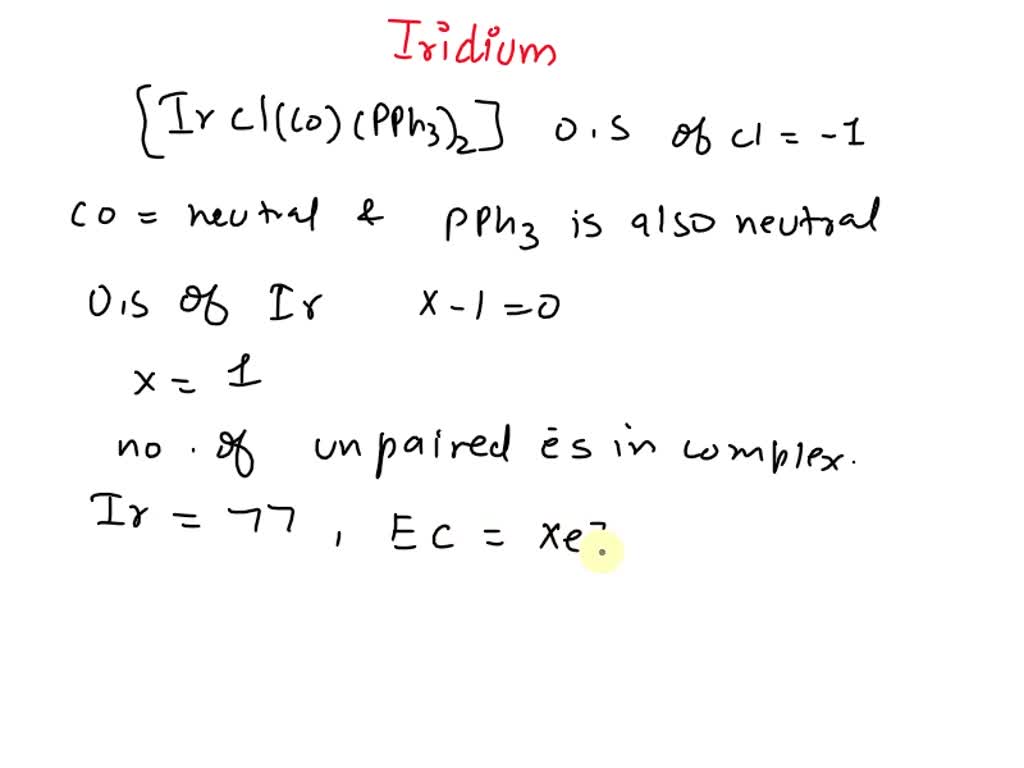 Iridium
[Ir Cl(CO)(PPh3)2] O.S of Cl = -1
CO = neutral & PPh3 is also neutral
O.S of Ir x-1=0
x = 1
no. of unpaired ēs in complex.
Ir = 77, EC = Xe